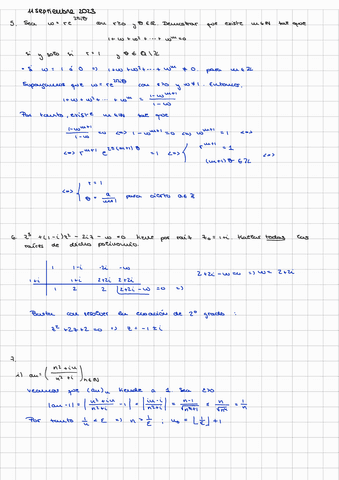 11 septiembre 2023
5. Sea w = re^{2πiθ} con r>0 y θ∈ℝ. Demostrar que existe m∈ℕ tal que
1+w+w²+...+w^m=0
si y solo si r=1 y θ∈ℚ\ℤ
• Si w=1 ó 0 ⇒ 1+w+w²+...+w^m ≠ 0, para m∈ℤ
Supongamos que w = re^{2πiθ} con r>0 y w≠1. Entonces,
1+w+w²+...+w^m = (1-w^{m+1})/(1-w)
Por tanto, existe m∈ℕ tal que
(1-w^{m+1})/(1-w) = 0 <=> 1-w^{m+1}=0 <=> w^{m+1}=1 <=>
<=> r^{m+1} e^{2πi(m+1)θ} = 1 <=> { r^{m+1}=1
(m+1)θ∈ℤ <=>
<=> { r=1
θ = a/(m+1) para cierto a∈ℤ
6. z³+(1-i)z²-2iz-w=0 tiene por raíz z₀=1+i. Hallar todas las
raíces de dicho polinomio.
1 1-i -2i -w
1+i 1+i 2+2i 2+2i
1 2 2 2+2i-w =0 ⇒
2+2i-w=0 ⇒ w=2+2i
Basta con resolver la ecuación de 2º grado:
z²+2z+2=0 ⇒ z=-1±i
7.
i) an = ((n²+in)/(n²+i))_{n∈ℕ}
veamos que (an)n tiende a 1. Sea ε>0
|an-1| = |(n²+in)/(n²+i) - 1| = |(in-i)/(n²+i)| = (n-1)/√(n⁴+1) ≤ n/√n⁴ = 1/n
Por tanto 1/n < ε ⇒ n > 1/ε ; n₀ = [1/ε]+1